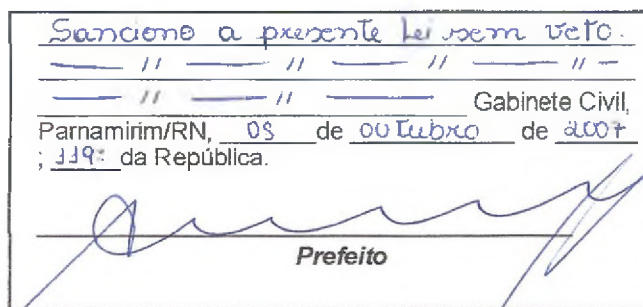 Sanciono a presente Lei sem veto.
—— // —— // —— // —— // —
—— // —— // —— Gabinete Civil,
Parnamirim/RN, 05 de outubro de 2007
; 119º da República.
Prefeito